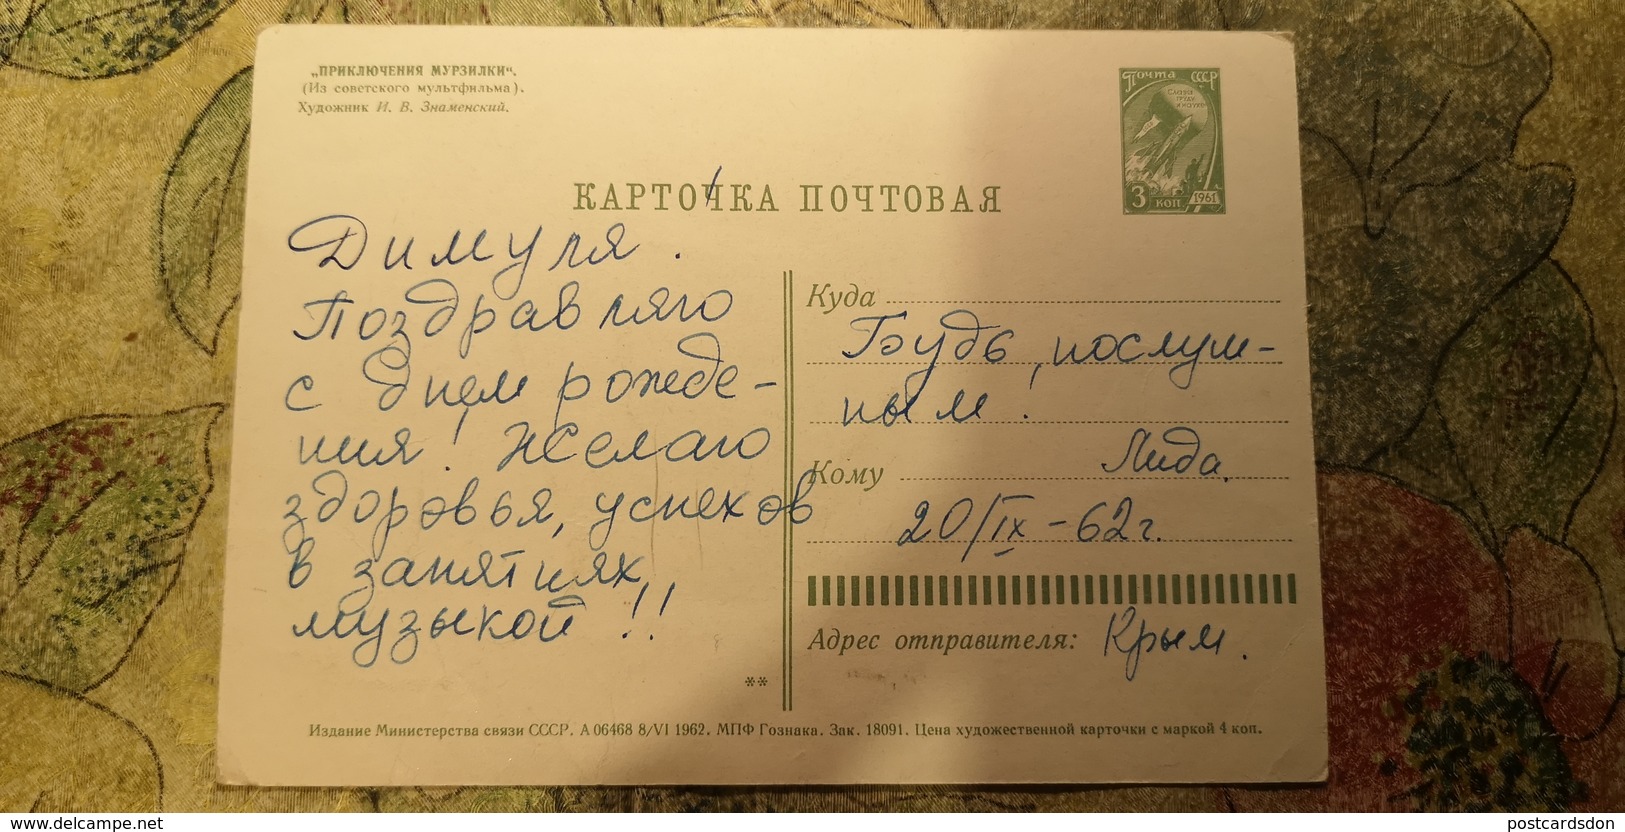 „ПРИКЛЮЧЕНИЯ МУРЗИЛКИ“.
(Из советского мультфильма).
Художник И. В. Знаменский.
Почта СССР
СЛАВА
ТРУДУ
И НАУКЕ
3 КОП 1961
КАРТОЧКА ПОЧТОВАЯ
Димуля.
Поздравляю
с днем рожде-
ния! Желаю
здоровья, успехов
в занятиях
музыкой!!
Куда
Будь, послуш-
ным!
Кому
Лида.
20/IX-62г.
Адрес отправителя: Крым.
**
Издание Министерства связи СССР. А 06468 8/VI 1962. МПФ Гознака. Зак. 18091. Цена художественной карточки с маркой 4 коп.
www.delcampe.net
postcardsdon